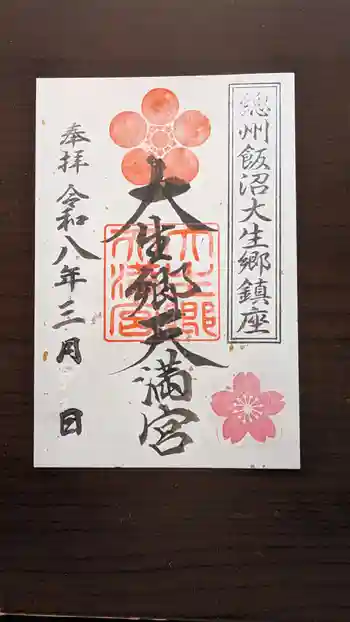 總州飯沼大生郷鎮座
大生郷天満宮
大生郷
天満宮
奉拝 令和八年三月 日